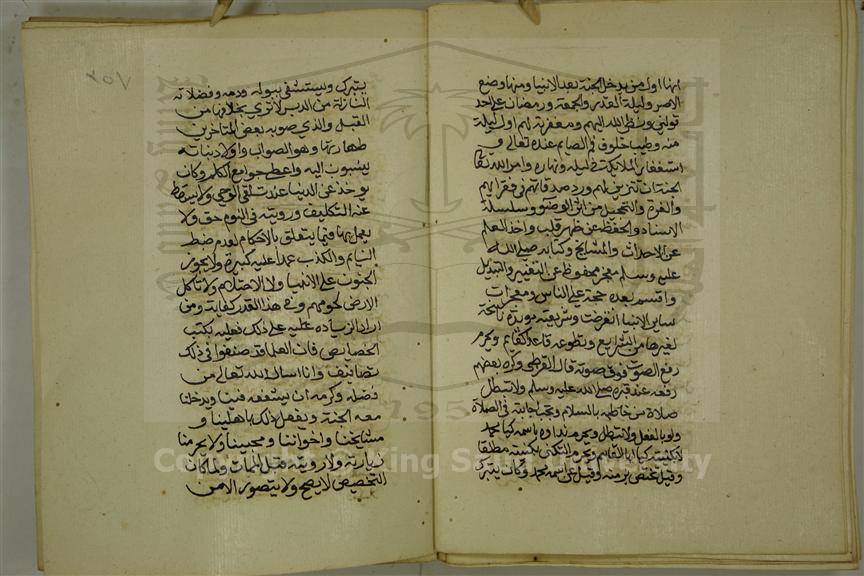 انها اول من يدخل الجنة بعد الانبيا ومنها وضع
الاصر وليلة القدر والجمعة ورمضان على احد
قولين ونظر الله اليهم ومغفرته لهم اول ليلة
منه وطيب خلوف فم الصايم عنده تعالى و
استغفار الملايكة في ليله ونهاره وامر الله تعا
الجنة ان تتزين لهم ورد صدقاتهم في فقرايهم
والغرة والتحجيل من اثر الوضوء وسلسلة
الاسناد والحفظ عن ظهر قلب واخذ العلم
عن الاحداث والمشايخ وكتابه صلى الله
عليه وسلم معجز محفوظ عن التغيير والتبديل
واقسم بعده حجة على الناس ومعجزات
ساير الانبيا انقرضت وشريعته موبدة ناسخة
لغيرها من الشرايع وتطوعه قاعدا كقايم ويحرم
رفع الصوت فوق صوته قال القرطبي وكره بعضهم
رفعه عند قبره صلى الله عليه وسلم ولا تبطل
صلاة من خاطبه بالسلام ويجب اجابته في الصلاة
ولو بالفعل ولا تبطل ويحرم نداوه باسمه كيا محمد
لا كنيته كيا ابا القاسم ويحرم التكني بكنيته مطلقا
وقيل يختص بزمنه وقيل عن اسمه محمد وكان يتبرك
يتبرك ويستشفى ببوله ودمه وفضلاته
النازلة من الدبر لا ترى بخلافها من
القبل والذي صوبه بعض المتاخرين
طهارتها وهو الصواب واولاد بناته
ينسبون اليه واعطي جوامع الكلم وكان
يوخذ عن الدنيا عند تلقي الوحي ولا يسقط
عنه التكليف ورويته في النوم حق ولا
يعمل بها فيما يتعلق بالاحكام لعدم ضبط
النايم والكذب عمدا عليه كبيرة ولا يجوز
الجنون على الانبيا ولا الاحتلام ولا تاكل
الارض لحومهم وفي هذا القدر كفاية ومن
اراد الزياده على ذلك فعليه بكتب
الخصايص فان العلما قد صنفوا في ذلك
تصانيف وانا اسال الله تعالى من
فضله وكرمه ان يشفعه فينا ويدخلنا
معه الجنة ويفعل ذلك باهلينا و
مشايخنا واخواننا ومحبينا ولا يحرمنا
زيارته ولا رويته قبل الممات ولما كان
التخصيص لا يصح ولا يتصور الا من
Copyright © King Saud University
1957